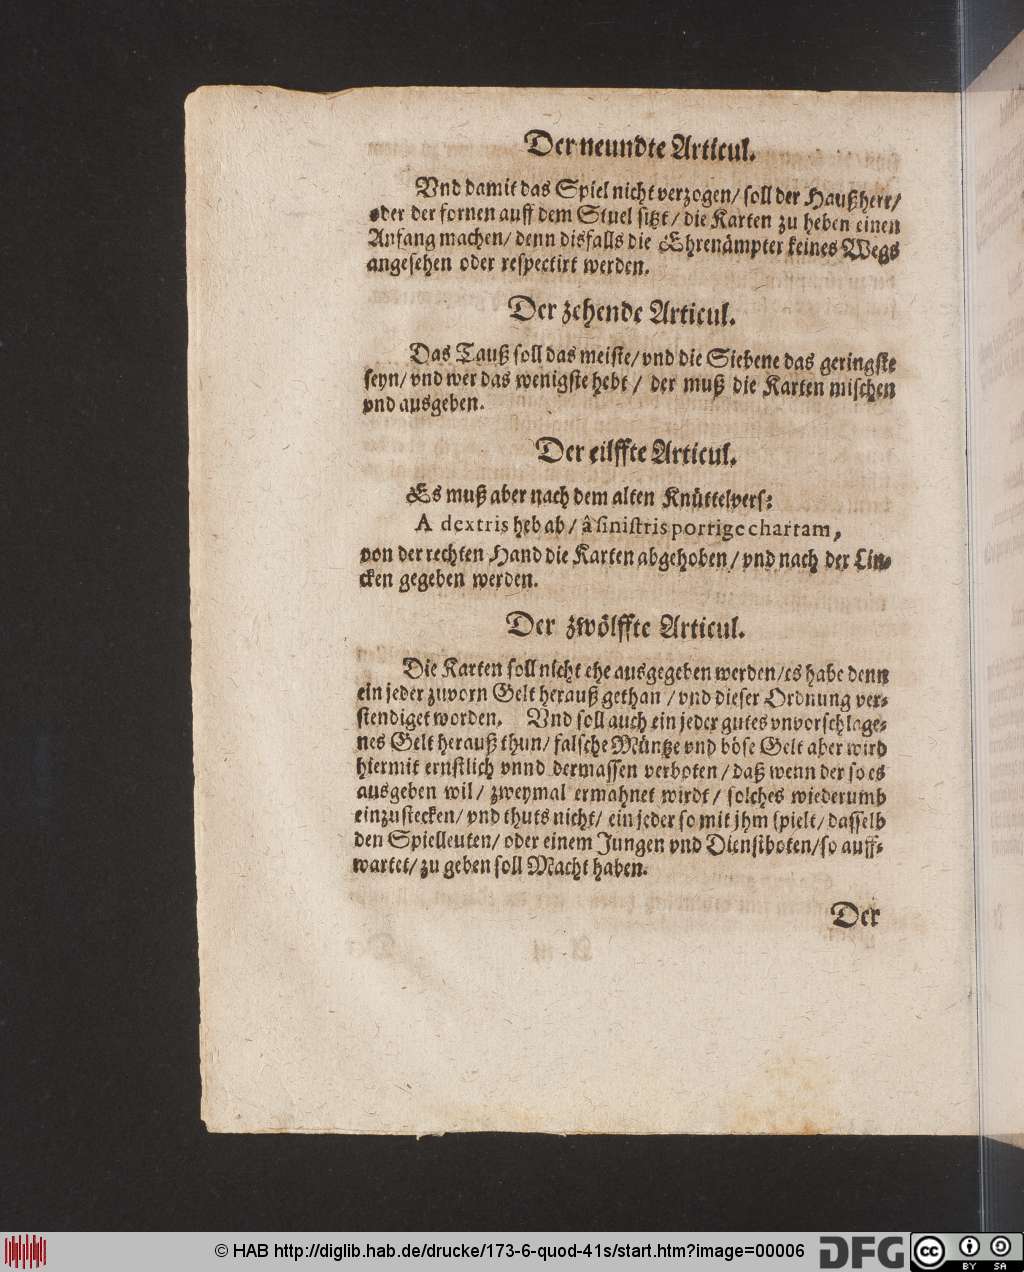 Der neundte Articul.
Vnd damit das Spiel nicht verzogen/ soll der Haußherr/
oder der fornen auff dem Stuel sitzt/ die Karten zu heben einen
Anfang machen/ denn disfalls die Ehrenämpter keines Wegs
angesehen oder respectirt werden.
Der zehende Articul.
Das Tauß soll das meiste/ vnd die Siebene das geringste
seyn/ vnd wer das wenigste hebt / der muß die Karten mischen
vnd ausgeben.
Der eilffte Articul.
Es muß aber nach dem alten Knüttelvers:
A dextris heb ab / â sinistris porrige chartam,
von der rechten Hand die Karten abgehoben/ vnd nach der Lin-
cken gegeben werden.
Der zwölffte Articul.
Die Karten soll nicht ehe ausgegeben werden/ es habe denn
ein jeder zuvorn Gelt herauß gethan / vnd dieser Ordnung ver-
stendiget worden. Vnd soll auch ein jeder gutes vnvorschlage-
nes Gelt herauß thun/ falsche Müntze vnd böse Gelt aber wird
hiermit ernstlich vnnd dermassen verboten/ daß wenn der so es
ausgeben wil/ zweymal ermahnet wirdt/ solches wiederumb
einzustecken/ vnd thuts nicht/ ein jeder so mit jhm spielt/ dasselb
den Spielleuten/ oder einem Jungen vnd Dienstboten/ so auff-
wartet/ zu geben soll Macht haben.
Der
© HAB http://diglib.hab.de/drucke/173-6-quod-41s/start.htm?image=00006
DFG
cc BY SA